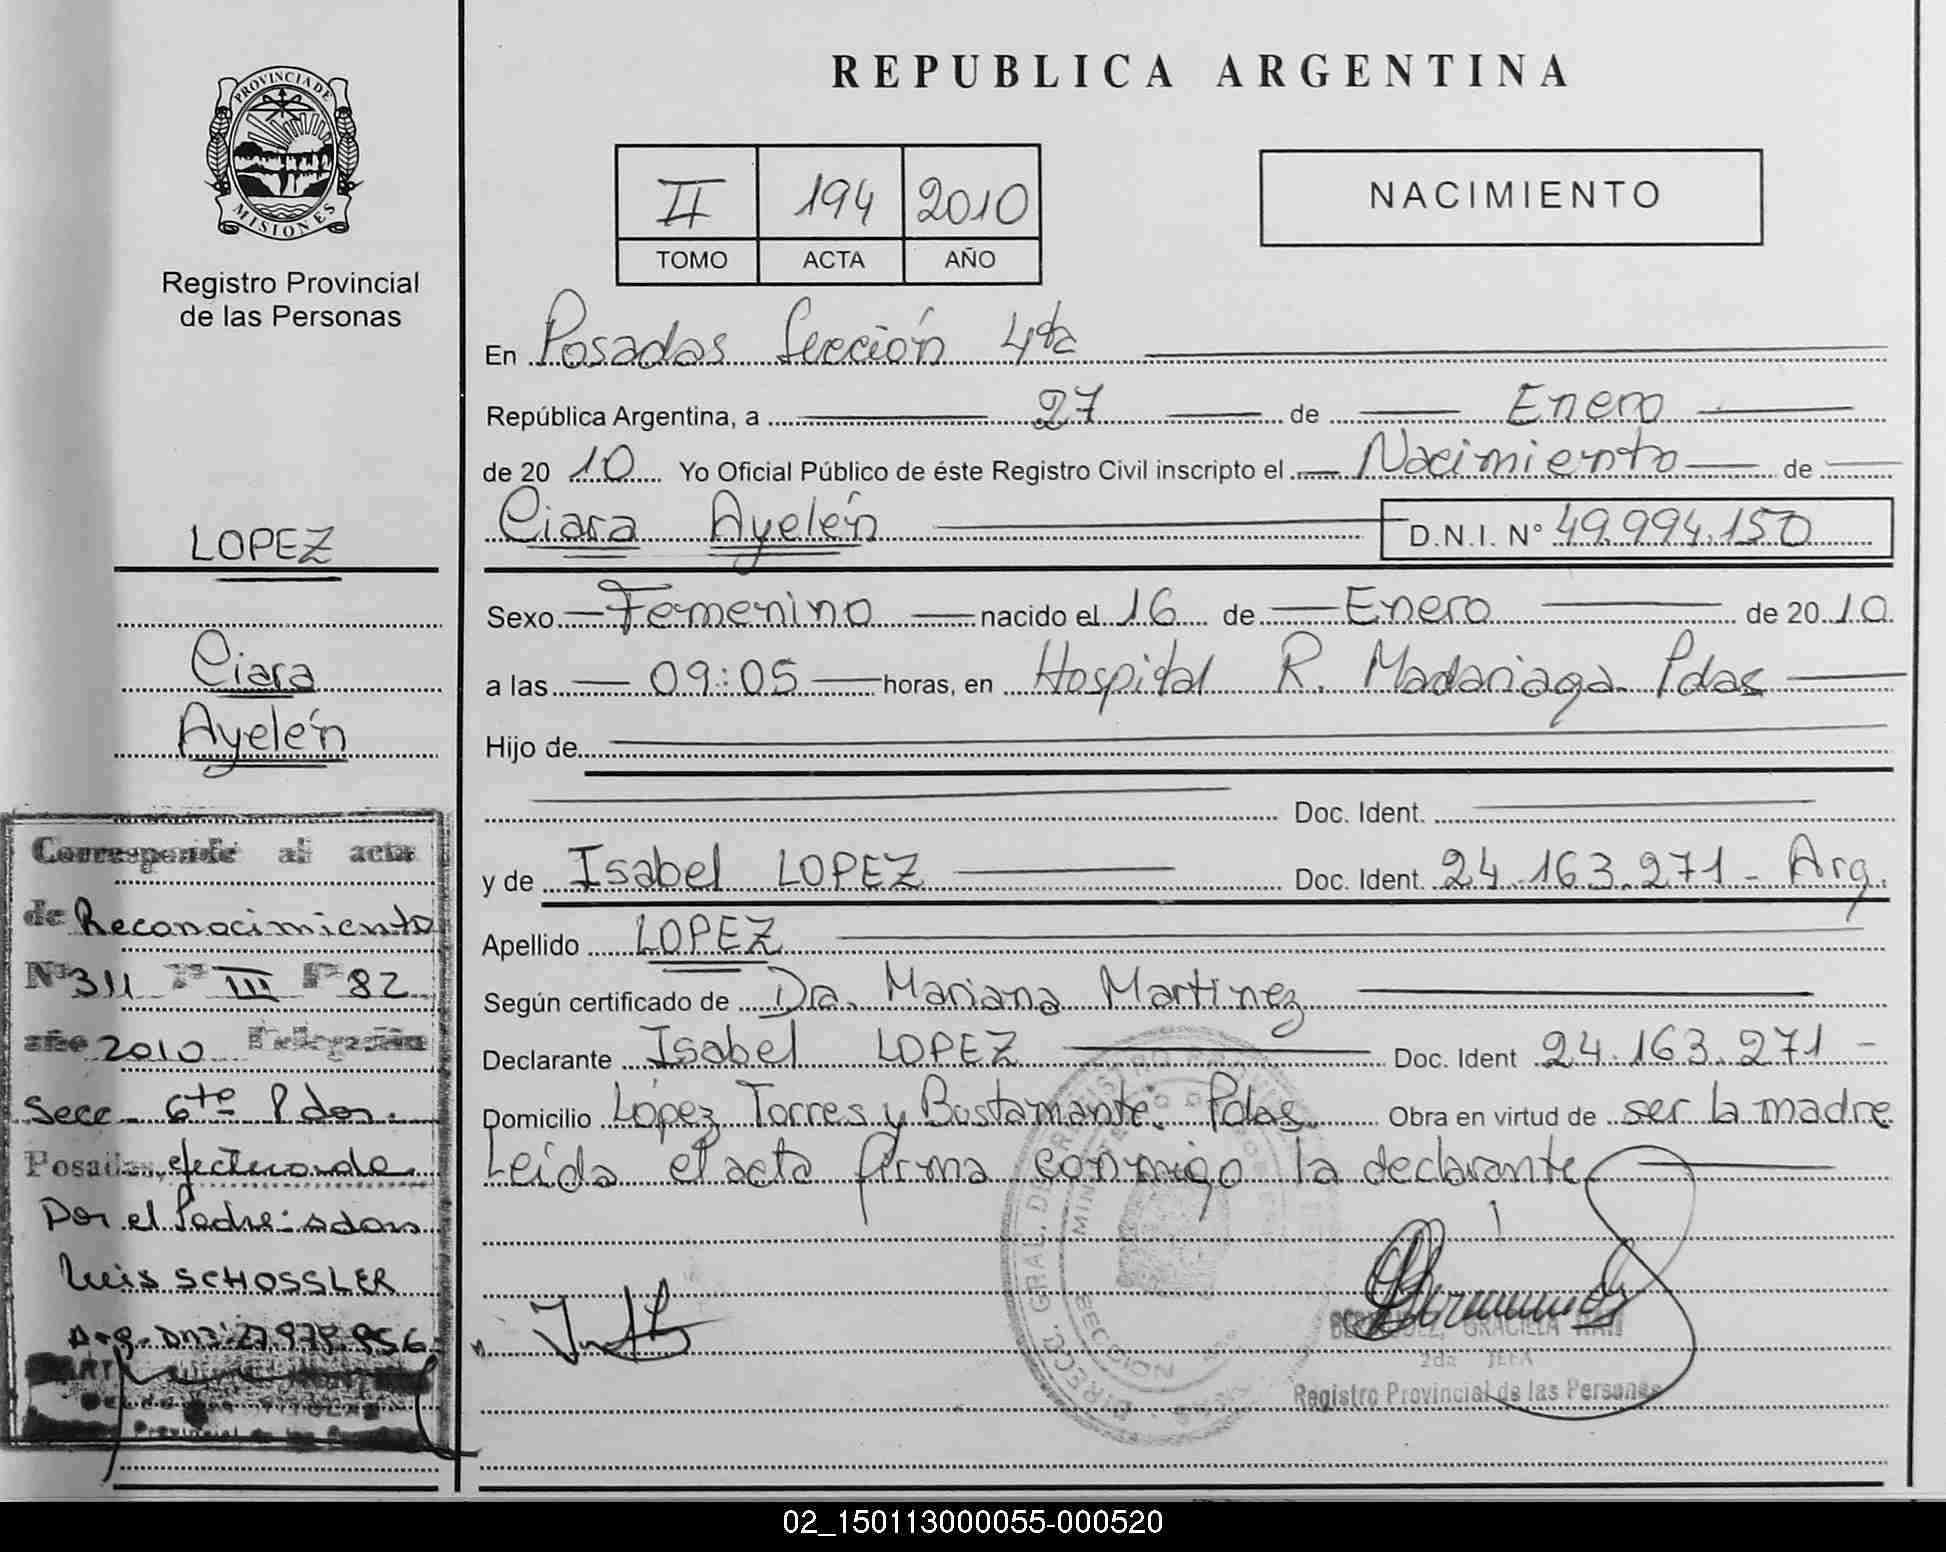 PROVINCIA DE
MISIONES
Registro Provincial
de las Personas
LOPEZ
Ciara
Ayelén
Corresponde al acta
de Reconocimiento
Nº 311 Tº III Fº 82
año 2010 Delegación
Secc. 6ta Pdas.
Posadas, efectuando
Por el Padre: Adan
Luis SCHOSSLER
Arg. DNI: 27.978.956
REPUBLICA ARGENTINA
II 194 2010
TOMO ACTA AÑO
NACIMIENTO
En Posadas Sección 4ta
República Argentina, a 27 de Enero
de 2010 Yo Oficial Público de éste Registro Civil inscripto el Nacimiento de
Ciara Ayelén D.N.I. Nº 49.994.150
Sexo Femenino nacido el 16 de Enero de 2010
a las 09:05 horas, en Hospital R. Madariaga Pdas
Hijo de
Doc. Ident.
y de Isabel LOPEZ Doc. Ident. 24.163.271 - Arg.
Apellido LOPEZ
Según certificado de Dra. Mariana Martinez
Declarante Isabel LOPEZ Doc. Ident 24.163.271 -
Domicilio López Torres y Bustamante. Pdas. Obra en virtud de ser la madre
Leída el acta firma conmigo la declarante
GRACIELA
2da JEFA
Registro Provincial de las Personas
02_150113000055-000520